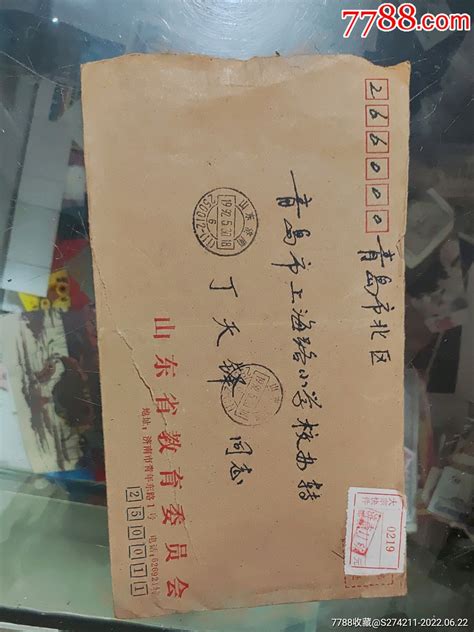 7788.com
266000
青岛市北区
青岛市上海路小学校办转
丁天
同志
山东济南
1992.5.30.18
6
山东省教育委员会
地址:济南市青年东路1号
250011
0219
7788收藏@S274211-2022.06.22